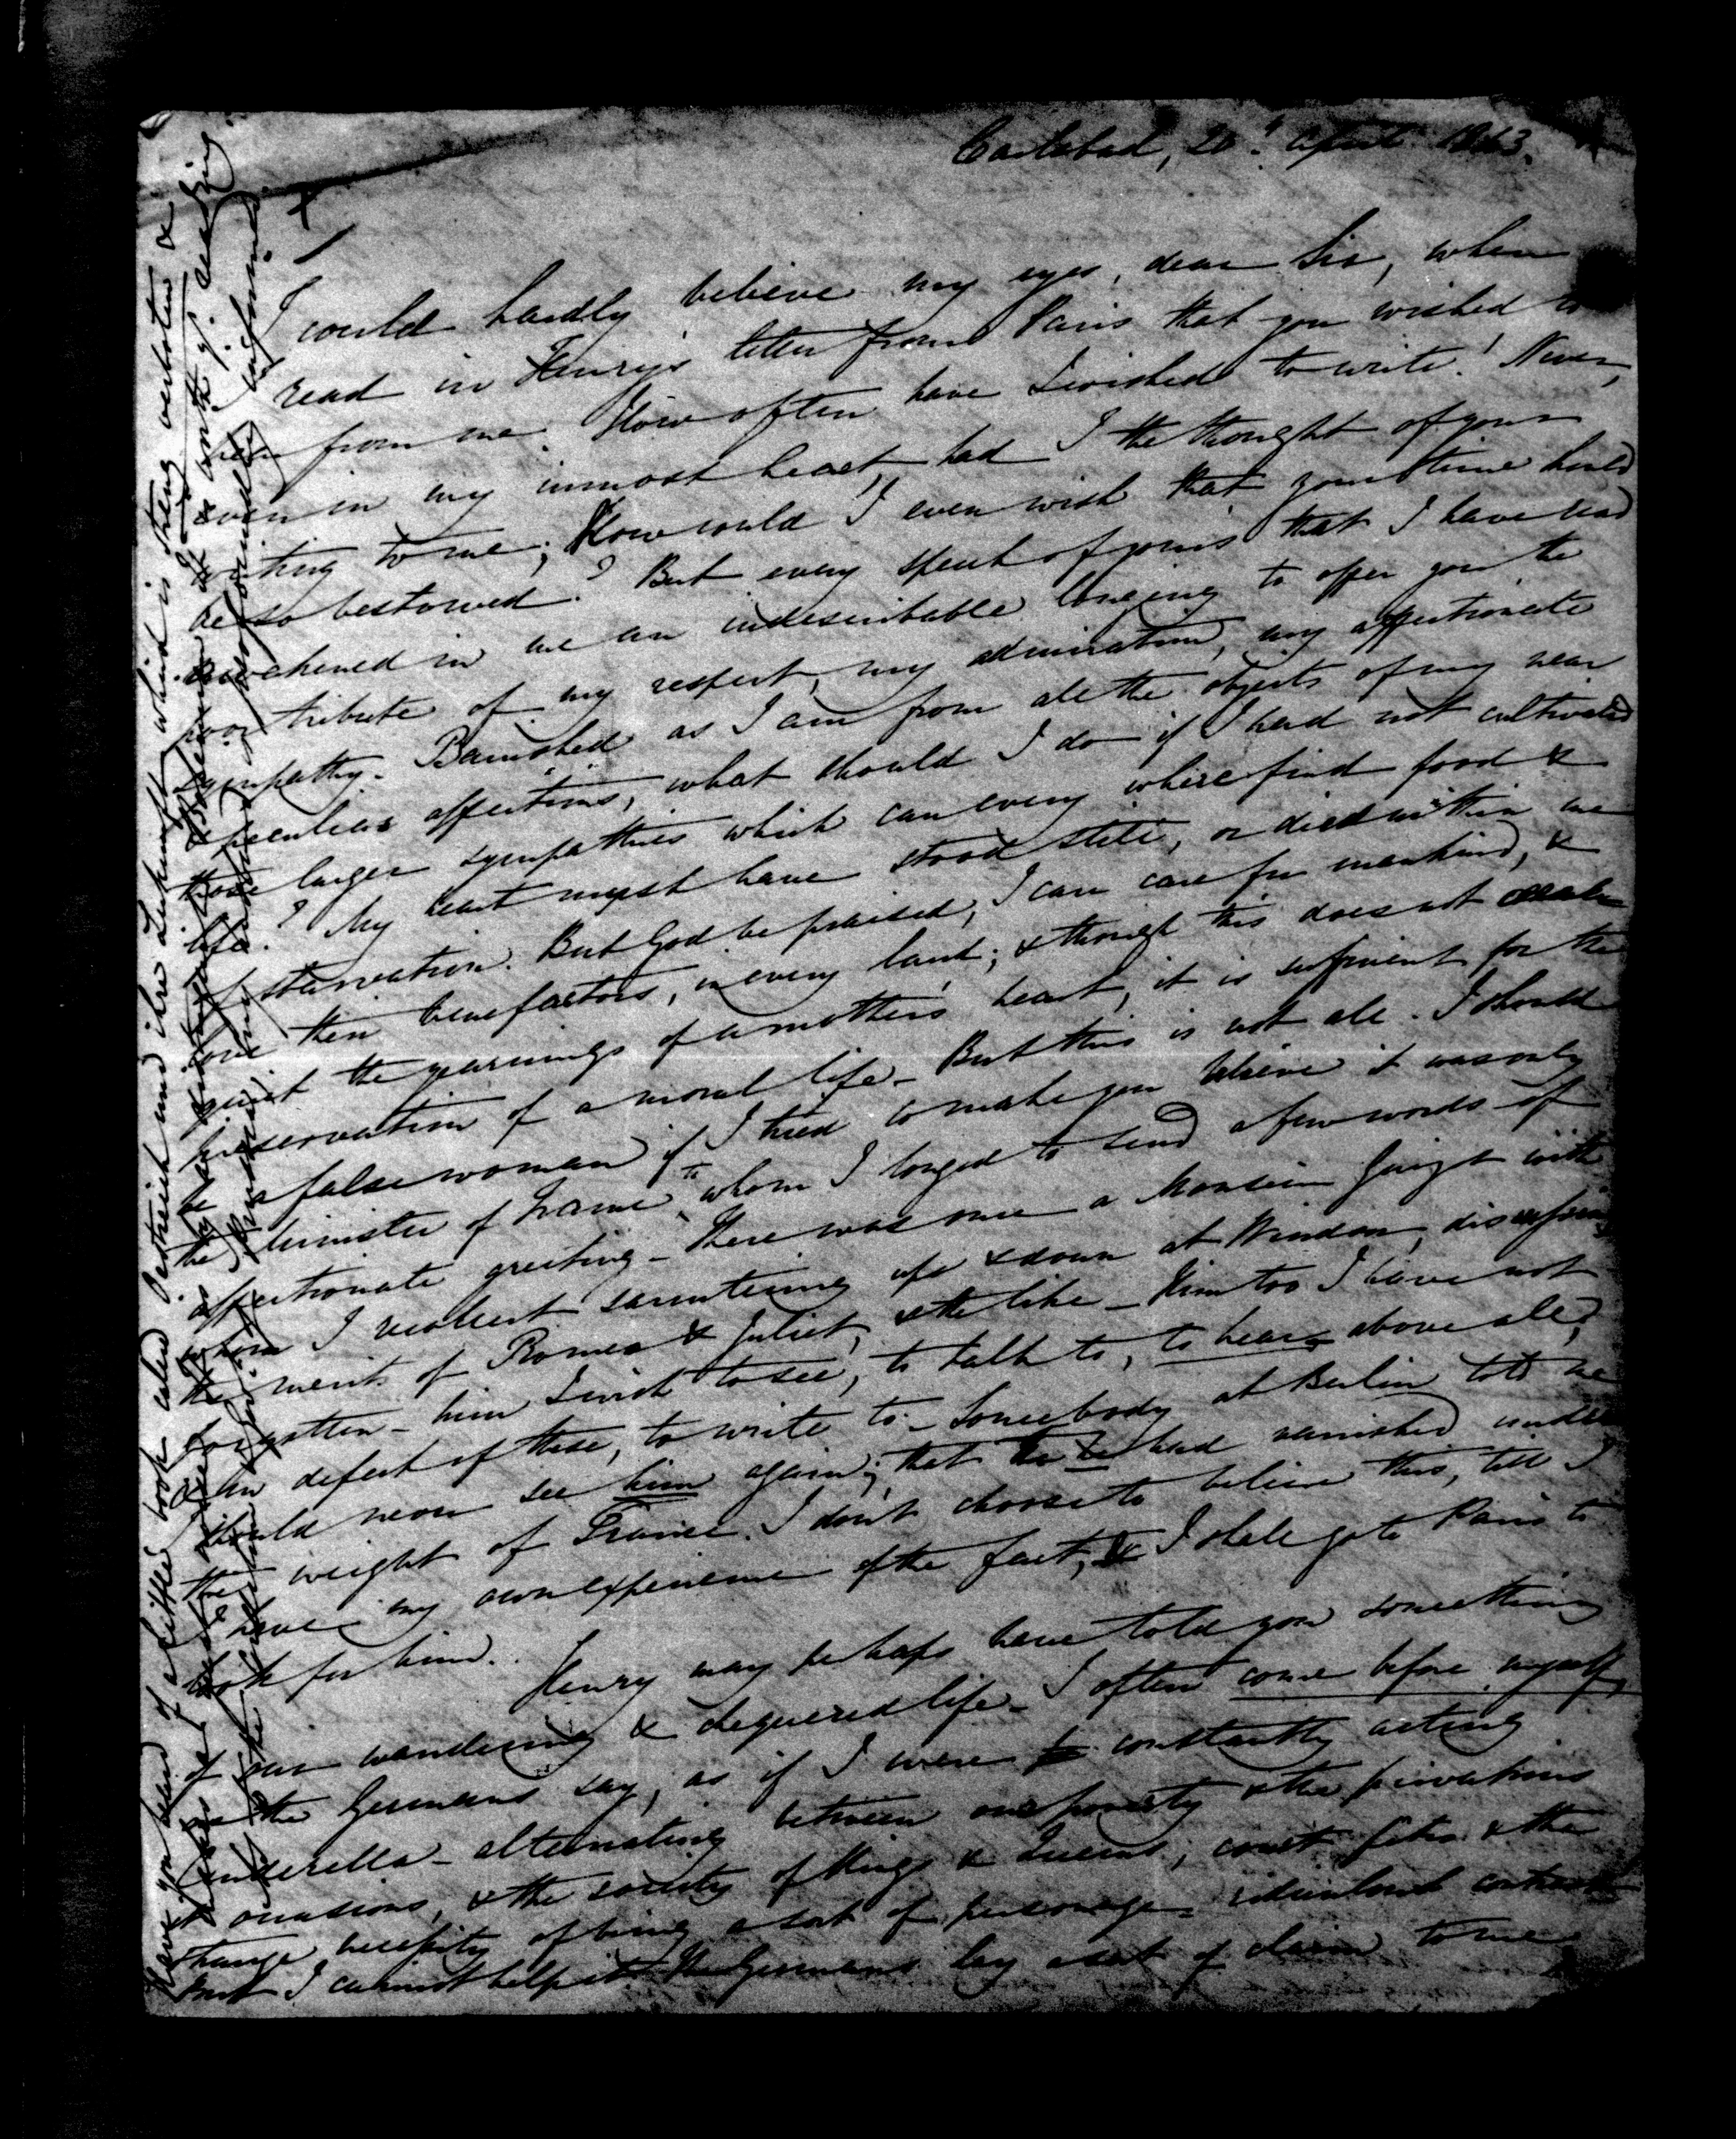 Carlsbad, 20th April 1843.
I could hardly believe my eyes, dear Sir, when
read in Henry's letter from Paris that you wished to
hear from me. How often have I wished to write! Never,
even in my inmost heart, had I the thought of your
writing to me; How could I even wish that your time should
be so bestowed? But every speech of yours that I have read
awakened in me an indescribable longing to offer you the
poor tribute of my respect, my admiration, my affectionate
sympathy. Banished as I am from all the objects of my near
& peculiar affections, what should I do if I had not cultivated
those larger sympathies which can every where find food &
life? My heart must have stood still, or died within me
of starvation. But God be praised, I can care for mankind, &
love their benefactors, in every land; & though this does not
quiet the yearnings of a mother's heart, it is sufficient for the
preservation of a moral life – But this is not all. I should
be a false woman if I tried to make you believe it was only
the Minister of France to whom I longed to send a few words of
affectionate greeting – There was once a Monsieur Guizot with
whom I recollect sauntering up & down at Windsor, discussing
the merits of Romeo & Juliet, & the like – Him too I have not
forgotten – him I wish to see, to talk to, to hear above all,
& in default of these, to write to – Somebody at Berlin told me
I should never see him again; that he had vanished under
the weight of France. I don't choose to believe this, till I
have my own experience of the fact, & I shall go to Paris to
look for him.
Henry may perhaps have told you something
of our wandering & chequered life – I often come before myself,
as the Germans say, as if I were constantly acting
Cinderella – alternating between our poverty & the privations
it occasions, & the society of Kings & Queens, court fêtes & the
strange necessity of being a sort of personage – ridiculous contrast
But I cannot help it. The Germans lay a sort of claim to me
Have you heard of a little book called Oestreich und ihre Zukunft, which is streng verboten &